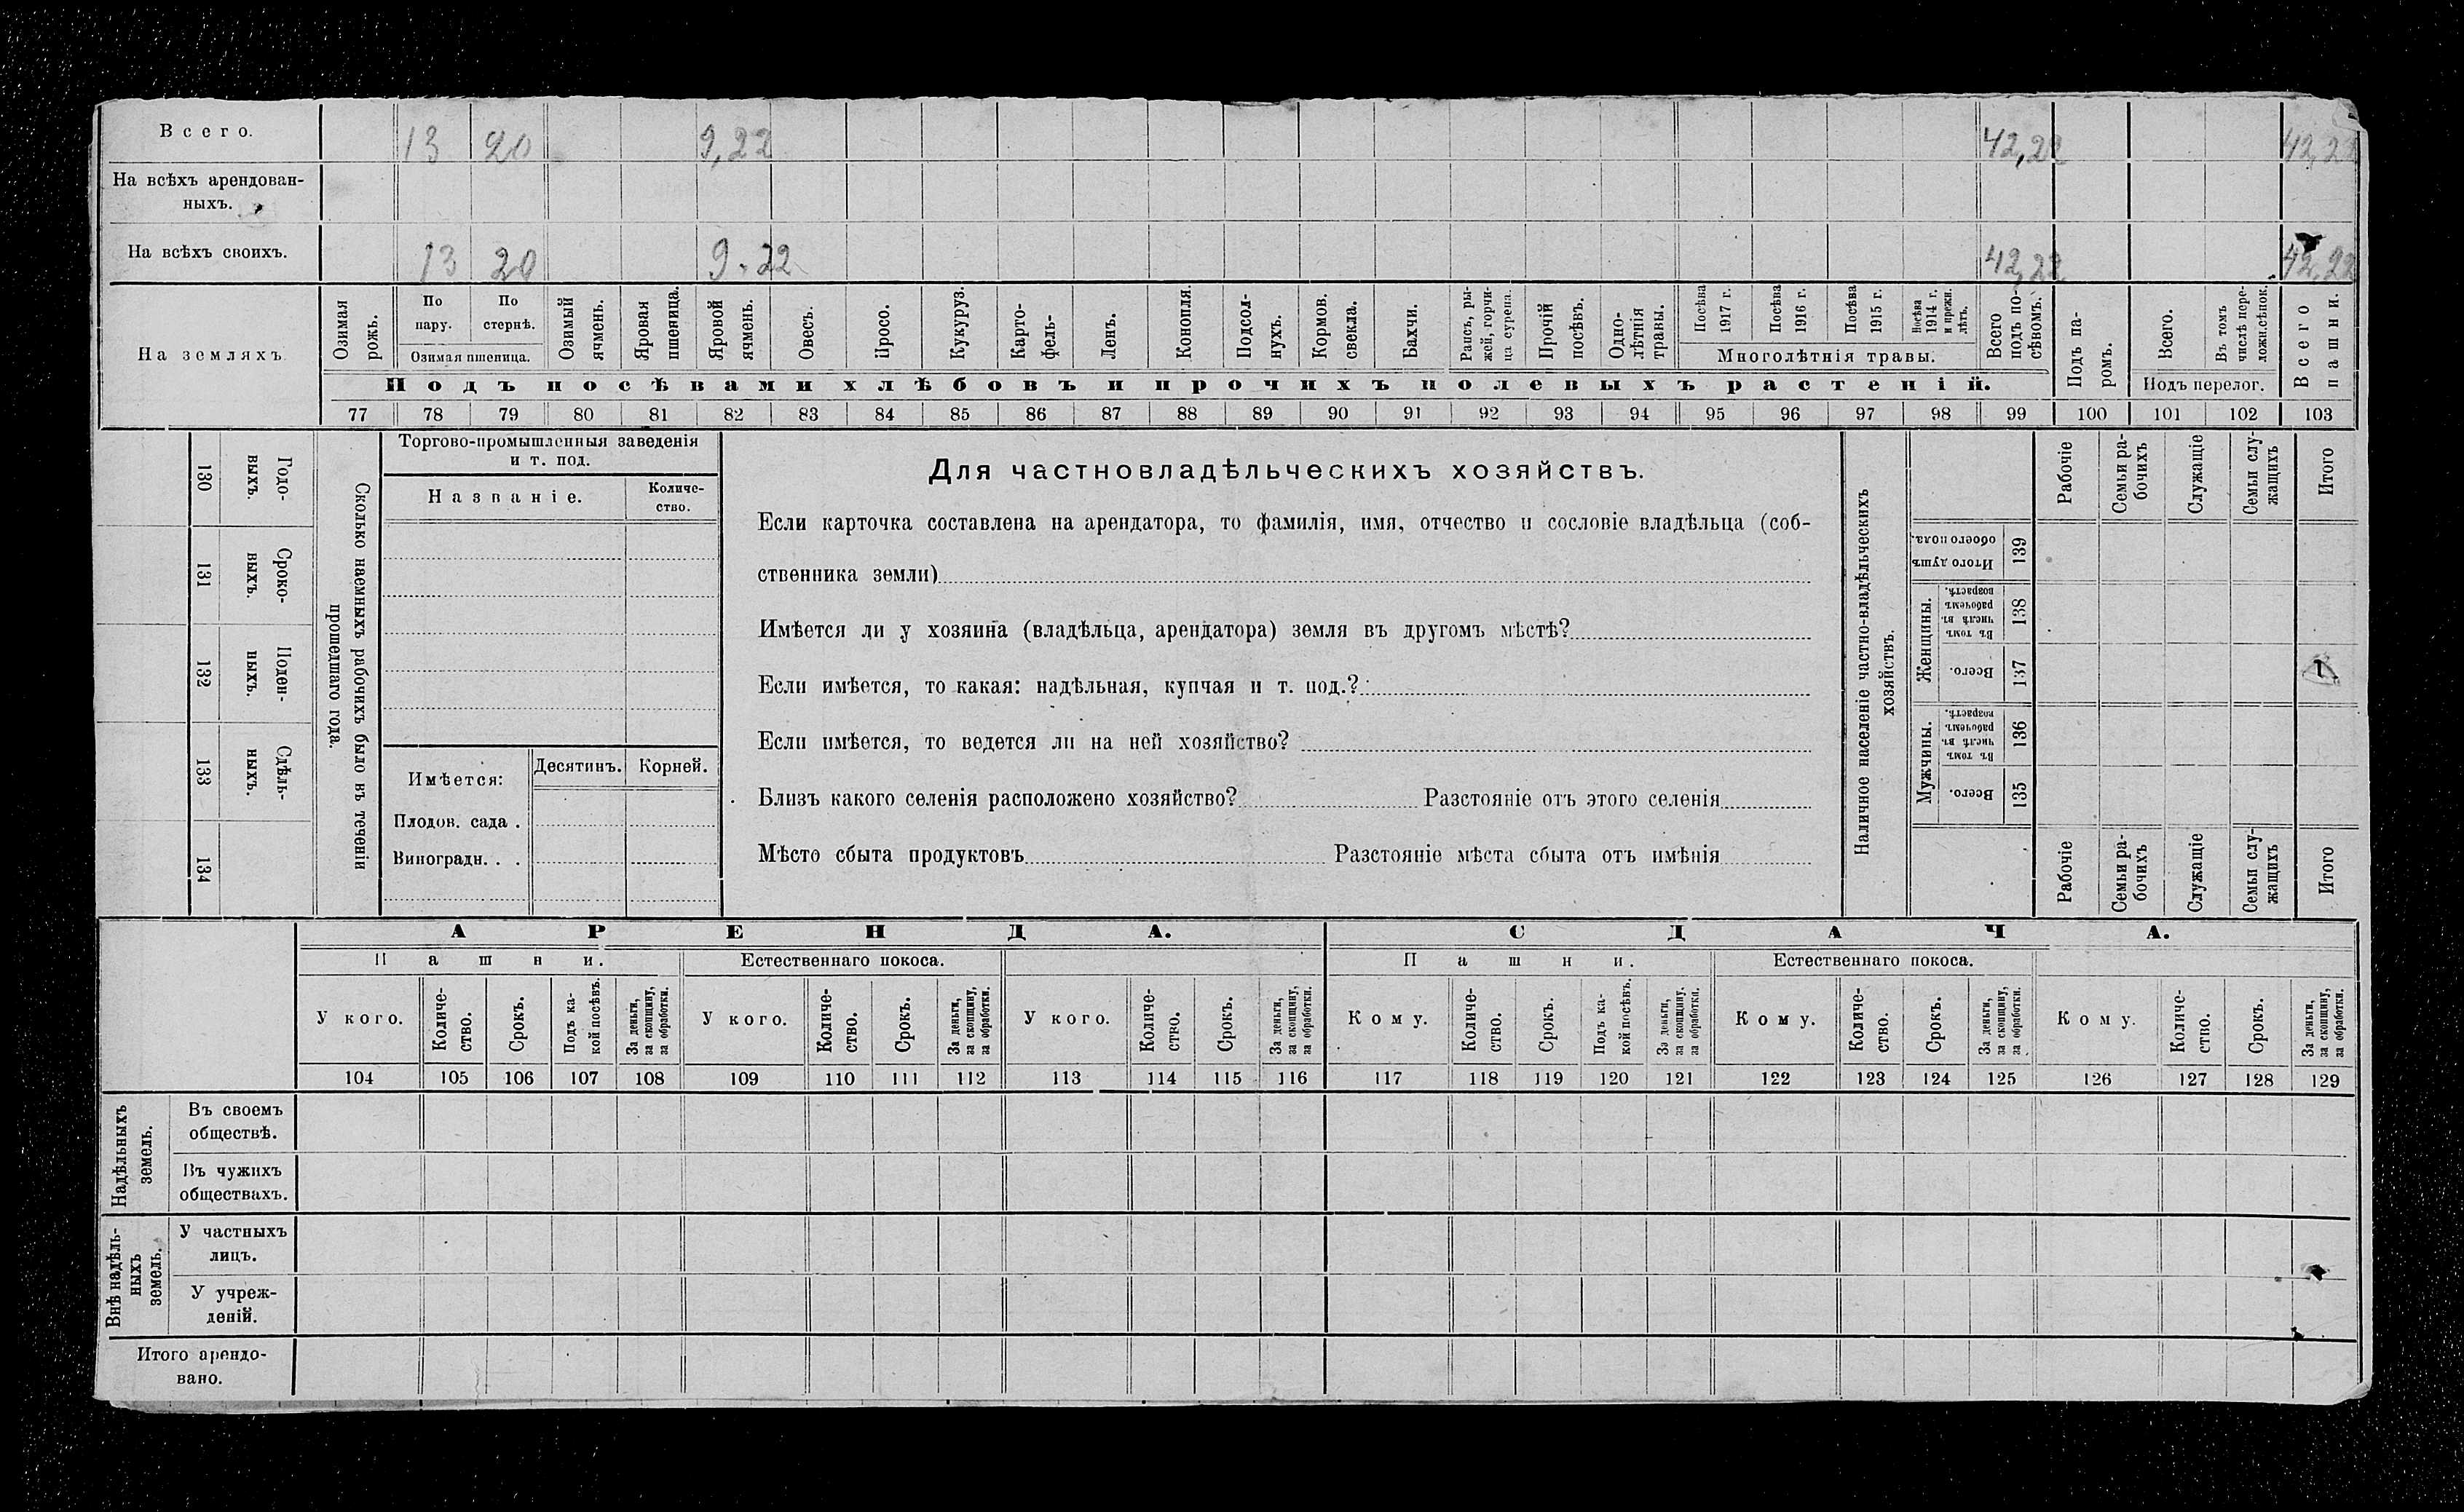 Всего. 13 20 9,22 42,22 42,22
На всѣхъ арендован-
ныхъ.
На всѣхъ своихъ. 13 20 9.22 42,22 42,22
На земляхъ
Озимая рожь.
По пару.
По стернѣ.
Озимая пшеница.
Озимый ячмень.
Яровая пшеница.
Яровой ячмень.
Овесъ.
Просо.
Кукуруз.
Карто-
фель-
Ленъ.
Конопля.
Подсол-
нухъ.
Кормов.
свекла.
Бахчи.
Рапсъ, ры-
жей, горчи-
ца сурепа.
Прочій
посѣвъ.
Одно-
лѣтнія
травы.
Посѣва
1917 г.
Посѣва
1916 г.
Посѣва
1915 г.
Посѣва
1914 г.
и прежн.
лѣтъ.
Многолѣтнія травы.
Всего
подъ по-
сѣвомъ.
Подъ па-
ромъ.
Всего.
Въ томъ
числѣ пере-
ложн.сѣнок.
Подъ перелог.
Всего
пашни.
Подъ посѣвами хлѣбовъ и прочихъ полевыхъ растеній.
77 78 79 80 81 82 83 84 85 86 87 88 89 90 91 92 93 94 95 96 97 98 99 100 101 102 103
Годо-
выхъ.
130
Сроко-
выхъ.
131
Поден-
ныхъ.
132
Сдѣль-
ныхъ.
133
134
Сколько наемныхъ рабочихъ было въ теченіи
прошедшаго года.
Торгово-промышленныя заведенія
и т. под.
Названіе.
Количе-
ство.
Имѣется:
Десятинъ. Корней.
Плодов. сада .
Виноградн. . .
Для частновладѣльческихъ хозяйствъ.
Если карточка составлена на арендатора, то фамилія, имя, отчество и сословіе владѣльца (соб-
ственника земли)
Имѣется ли у хозяина (владѣльца, арендатора) земля въ другомъ мѣстѣ?
Если имѣется, то какая: надѣльная, купчая и т. под.?
Если имѣется, то ведется ли на ней хозяйство?
Близъ какого селенія расположено хозяйство? Разстояніе отъ этого селенія
Мѣсто сбыта продуктовъ Разстояніе мѣста сбыта отъ имѣнія
Наличное населеніе частно-владѣльческихъ
хозяйствъ.
Рабочіе
Семьи ра-
бочихъ
Служащіе
Семьи слу-
жащихъ
Итого
Итого душъ
обоего пола.
139
Женщины.
Въ томъ
числѣ въ
рабочемъ
возрастѣ.
138
Всего.
137
Мужчины.
Въ томъ
числѣ въ
рабочемъ
возрастѣ.
136
Всего.
135
Рабочіе
Семьи ра-
бочихъ
Служащіе
Семьи слу-
жащихъ
Итого
АРЕНДА. СДАЧА.
Пашни. Естественнаго покоса. Пашни. Естественнаго покоса.
У кого.
Количе-
ство.
Срокъ.
Подъ ка-
кой посѣвъ.
За деньги,
за скопщину,
за обработки.
У кого.
Количе-
ство.
Срокъ.
За деньги,
за скопщину,
за обработки.
У кого.
Количе-
ство.
Срокъ.
За деньги,
за скопщину,
за обработки.
Кому.
Количе-
ство.
Срокъ.
Подъ ка-
кой посѣвъ.
За деньги,
за скопщину.
за обработки.
Кому.
Количе-
ство.
Срокъ.
За деньги,
за скопщину,
за обработки.
Кому.
Количе-
ство.
Срокъ.
За деньги,
за скопщину,
за обработки.
104 105 106 107 108 109 110 111 112 113 114 115 116 117 118 119 120 121 122 123 124 125 126 127 128 129
Надѣльныхъ
земель.
Въ своемъ
обществѣ.
Въ чужихъ
обществахъ.
Внѣ надѣль-
ныхъ
земель.
У частныхъ
лицъ.
У учреж-
деній.
Итого арендо-
вано.